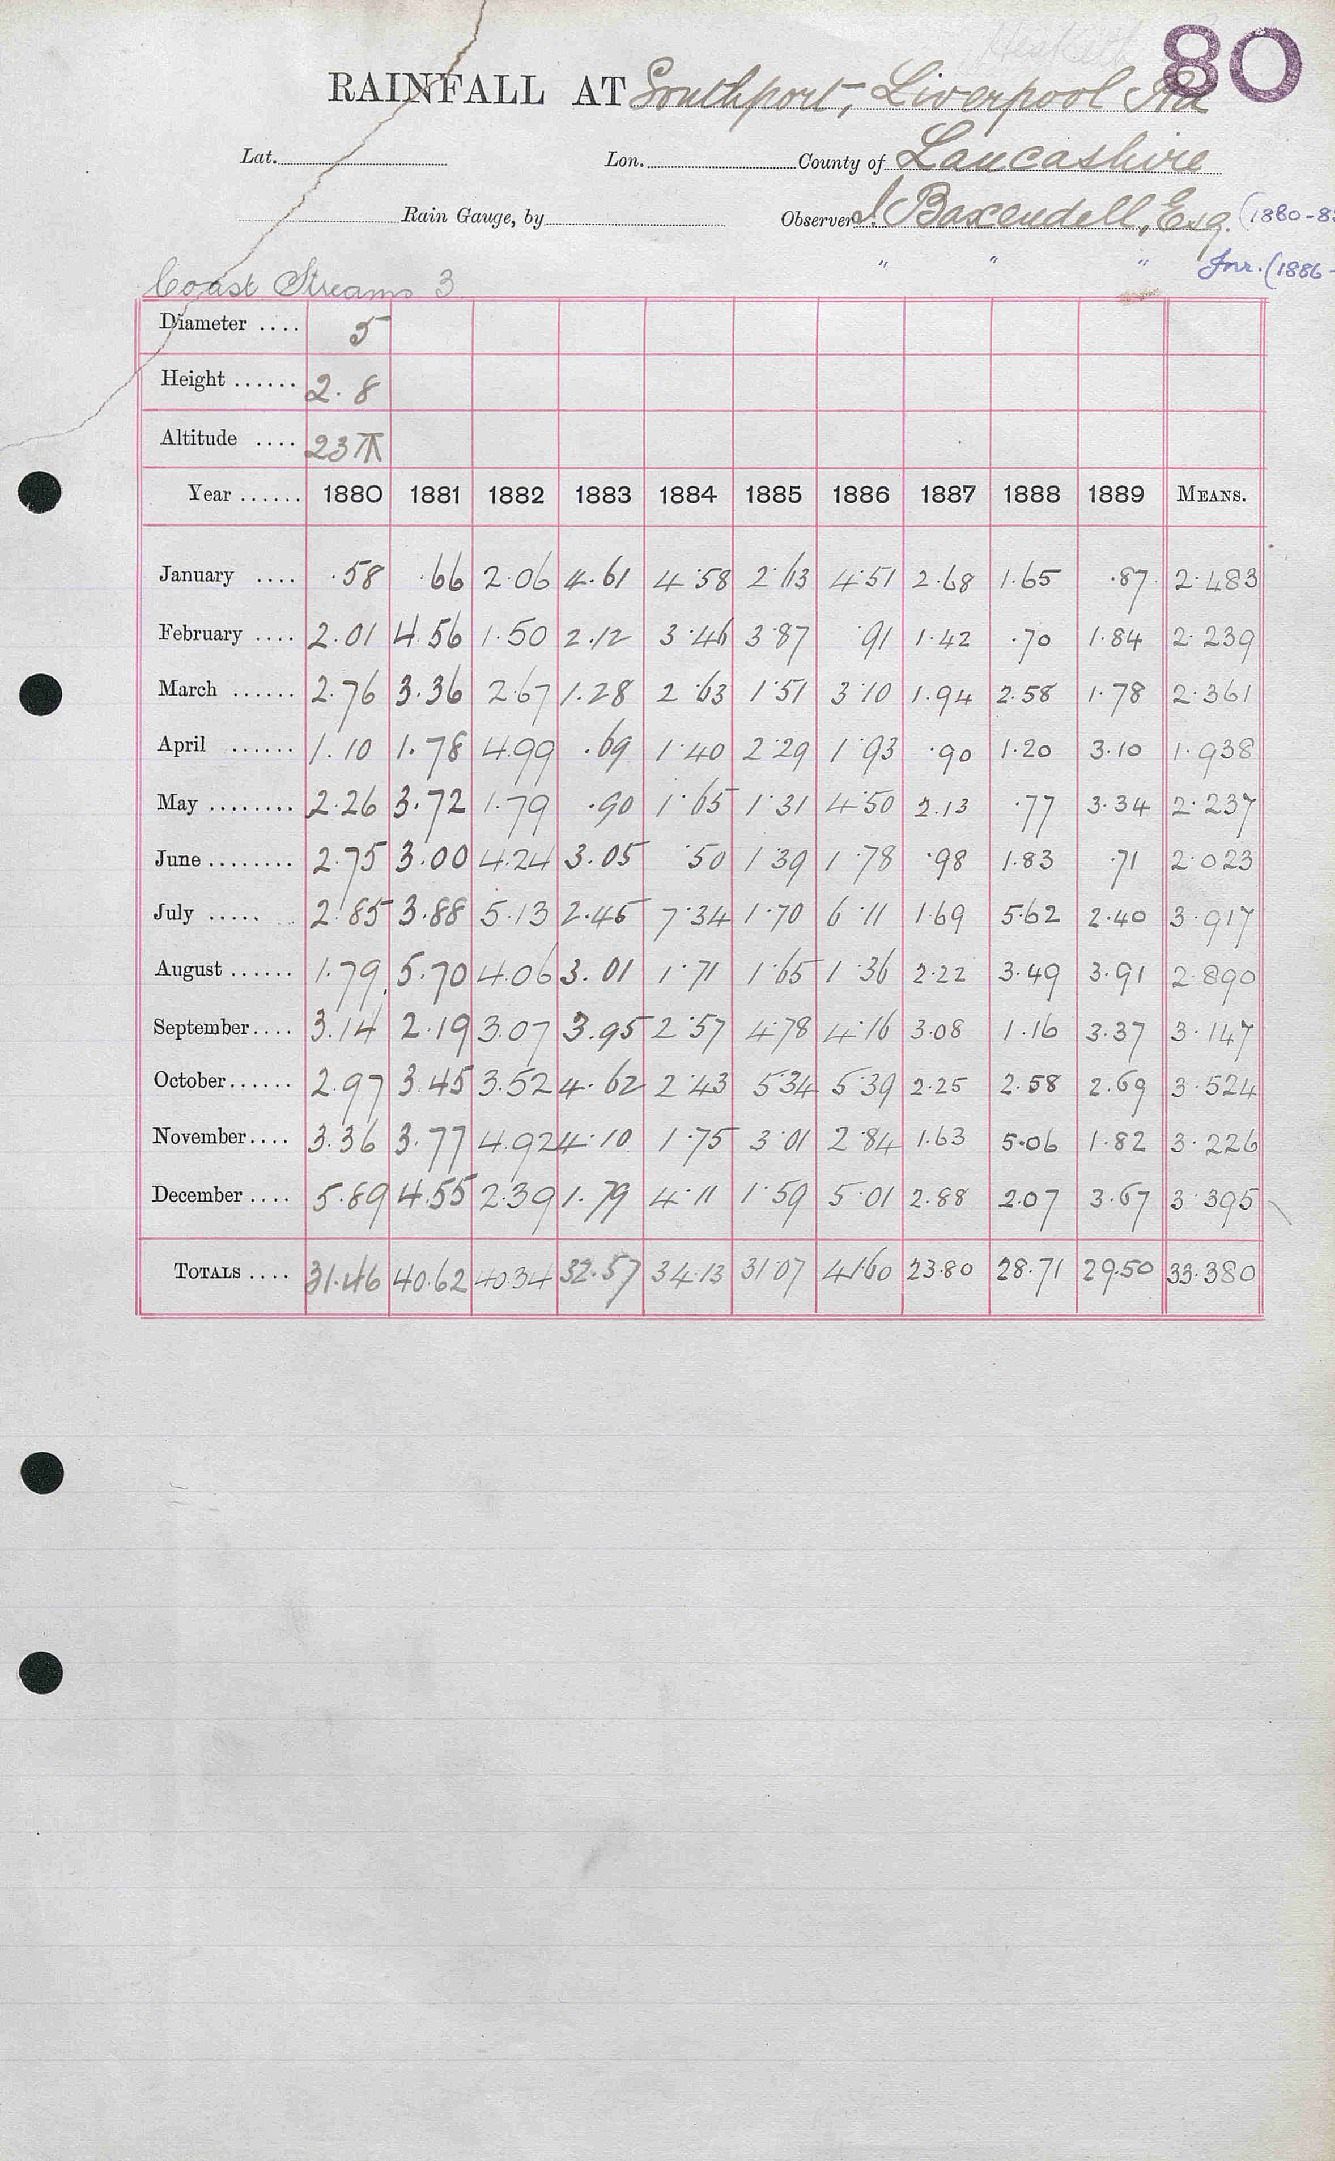 80
RAINFALL AT Southport, Liverpool Rd
Lat. Lon. County of Lancashire
Rain Gauge, by Observer J. Baxendell, Esq. (1880-85
" " " Jnr. (1886-
Coast Streams 3
Diameter .... 5
Height ...... 2.8
Altitude .... 23
Year ...... 1880 1881 1882 1883 1884 1885 1886 1887 1888 1889 MEANS.
January .... .58 .66 2.06 4.61 4.58 2.63 4.51 2.68 1.65 .87 2.483
February .... 2.01 4.56 1.50 2.12 3.46 3.87 .91 1.42 .70 1.84 2.239
March ...... 2.76 3.36 2.67 1.28 2.63 1.51 3.10 1.94 2.58 1.78 2.361
April ...... 1.10 1.78 4.99 .69 1.40 2.29 1.93 .90 1.20 3.10 1.938
May ........ 2.26 3.72 1.79 .90 1.65 1.31 4.50 2.13 .77 3.34 2.237
June ........ 2.75 3.00 4.24 3.05 .50 1.39 1.78 .98 1.83 .71 2.023
July ..... 2.85 3.88 5.13 2.45 7.34 1.70 6.11 1.69 5.62 2.40 3.917
August ...... 1.79 5.70 4.06 3.01 1.71 1.65 1.36 2.22 3.49 3.91 2.890
September.... 3.14 2.19 3.07 3.95 2.57 4.78 4.16 3.08 1.16 3.37 3.147
October...... 2.97 3.45 3.52 4.62 2.43 5.34 5.39 2.25 2.58 2.69 3.524
November.... 3.36 3.77 4.92 4.10 1.75 3.01 2.84 1.63 5.06 1.82 3.226
December .... 5.89 4.55 2.39 1.79 4.11 1.59 5.01 2.88 2.07 3.67 3.395
TOTALS .... 31.46 40.62 40.34 32.57 34.13 31.07 41.60 23.80 28.71 29.50 33.380